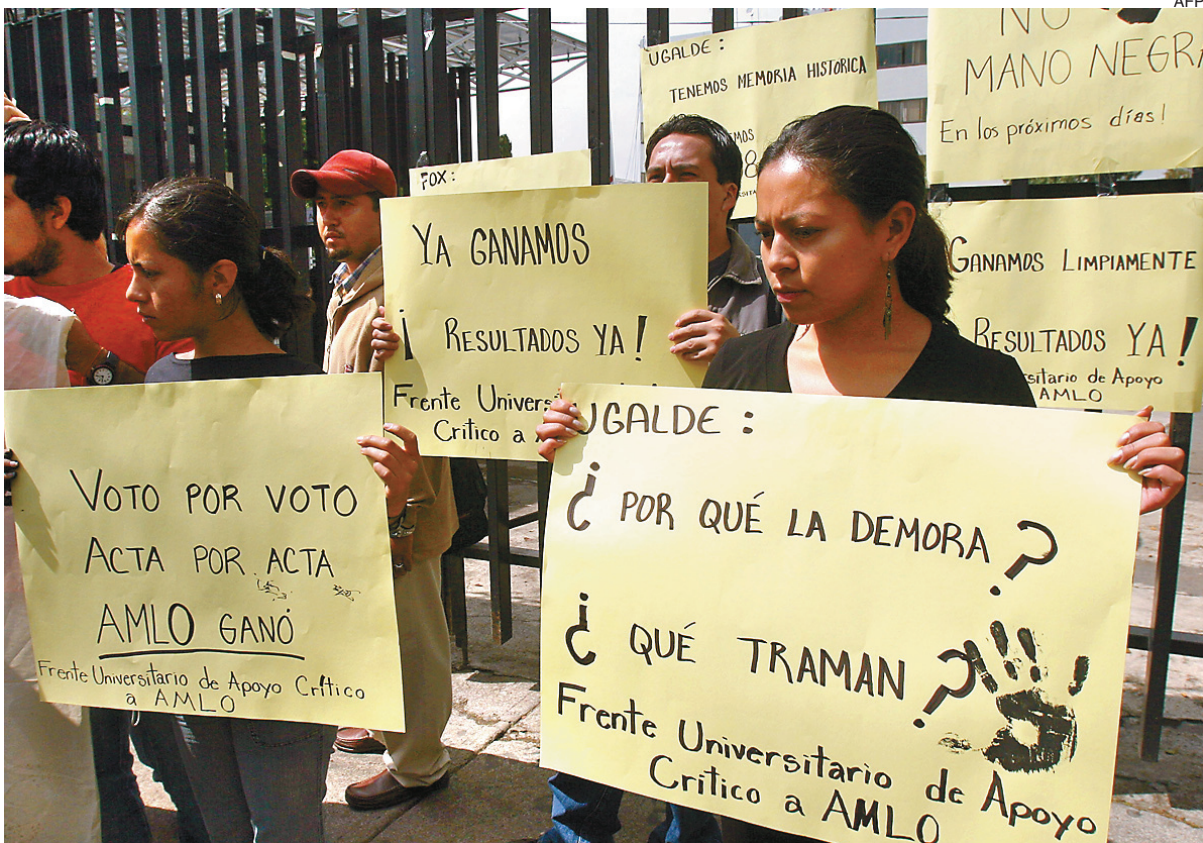 AFP
UGALDE:
TENEMOS MEMORIA HISTORICA
NO
MANO NEGRA
En los próximos días!
FOX:
YA GANAMOS
¡RESULTADOS YA!
Frente
Crítico a
GANAMOS LIMPIAMENTE
RESULTADOS YA!
de Apoyo
AMLO
VOTO POR VOTO
ACTA POR ACTA
AMLO GANÓ
Frente Universitario de Apoyo Crítico
a AMLO
UGALDE:
¿POR QUÉ LA DEMORA?
¿QUÉ TRAMAN?
Frente Universitario de Apoyo
Crítico a AMLO